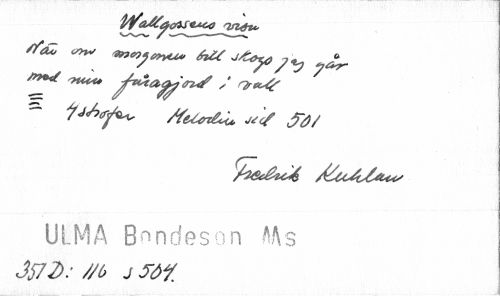 Wallgossens visa
När om morgonen till skogs jag går
med min fåragjord i vall
4 strofer Melodin sid 501
Fredrik Kuhlau
ULMA Bondeson Ms
351 D: 116 s 504.